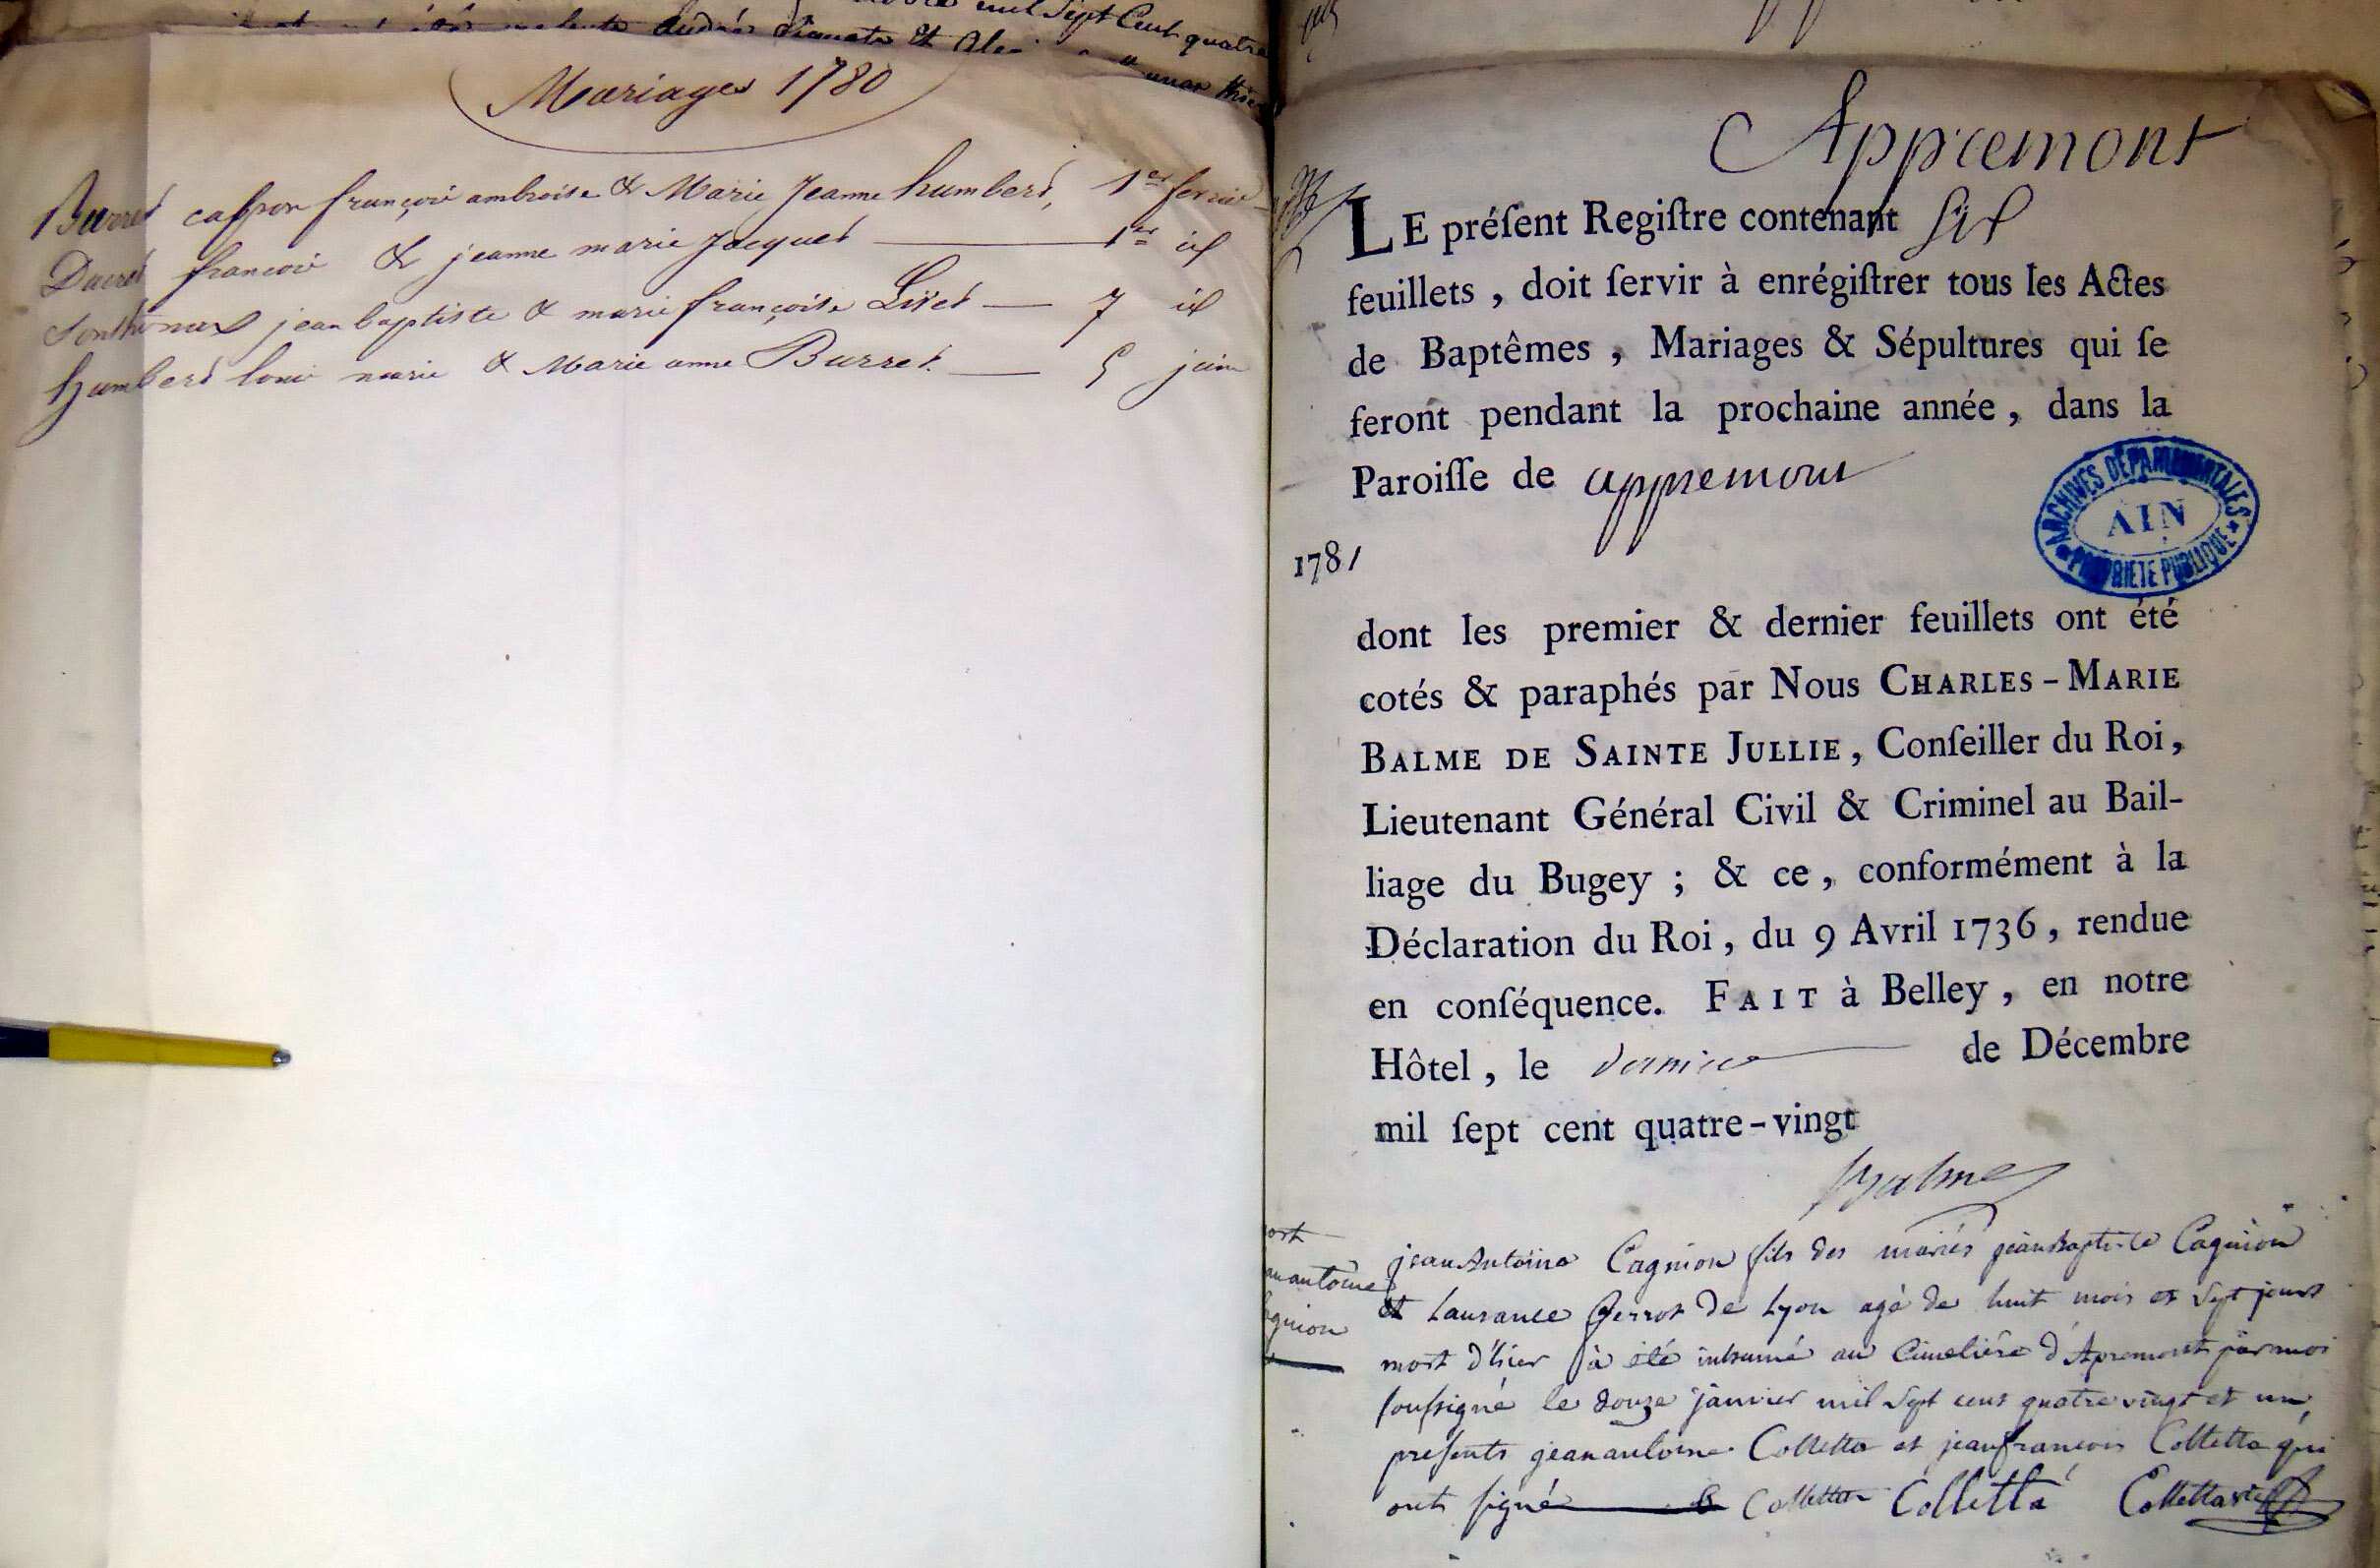 mil Sept Cent quatre
andré
Mariages 1780
Burret françois ambroise & Marie Jeanne humbert, 1er fevrie
Ducret françois & jeanne marie Jacquet 1er id
jean baptiste & marie françoise Livet 7 id
humbert loui marie & Marie anne Burret. 5 juin
Appremont
LE préſent Regiſtre contenant six
feuillets, doit ſervir à enrégiſtrer tous les Actes
de Baptêmes, Mariages & Sépultures qui ſe
feront pendant la prochaine année, dans la
Paroiſſe de appremont
ARCHIVES DÉPARTEMENTALES
AIN
PROPRIETE PUBLIQUE
1781
dont les premier & dernier feuillets ont été
cotés & paraphés par Nous CHARLES-MARIE
BALME DE SAINTE JULLIE, Conſeiller du Roi,
Lieutenant Général Civil & Criminel au Bail-
liage du Bugey; & ce, conformément à la
Déclaration du Roi, du 9 Avril 1736, rendue
en conſéquence. FAIT à Belley, en notre
Hôtel, le dernier de Décembre
mil ſept cent quatre-vingt
Balme
ort
an antoine
gnion
jean Antoine Cagnion fils des mariés jean Baptiste Cagnion
et Laurance Perrot de Lyon agé de huit mois et sept jours
mort d'hier à été inhumé au Cimetiére d'Apremont par moi
souſsigné le douze janvier mil sept cent quatre vingt et un,
preſents jean antoine Colletta et jean françois Colletta qui
ont ſigné Colletta Colletta Colletta vic